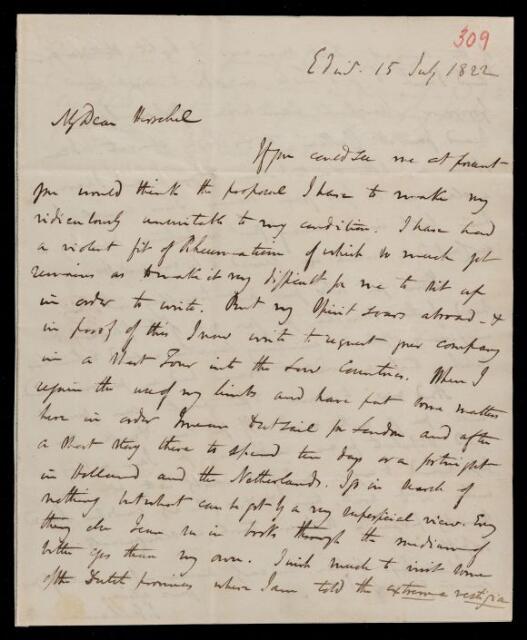 309
Edinb. 15 July 1822
My Dear Herschel
If you could see me at present
you would think the proposal I have to make very
ridiculously unsuitable to my condition. I have had
a violent fit of Rheumatism of which so much yet
remains as to make it very difficult for me to sit up
in order to write. But my Spirit soars abroad &
in proof of this I now write to request your company
in a Short Tour into the Low Countries. When I
regain the use of my limbs and have put some matters
here in order I mean to set sail for London and after
a Short Stay there to spend ten days or a fortnight
in Holland and the Netherlands. I go in search of
nothing but what can be got by a very superficial view. Every
thing else I can see in books through the medium of
better eyes than my own. I wish much to visit some
of the Dutch provinces where I am told the extrema vestigia